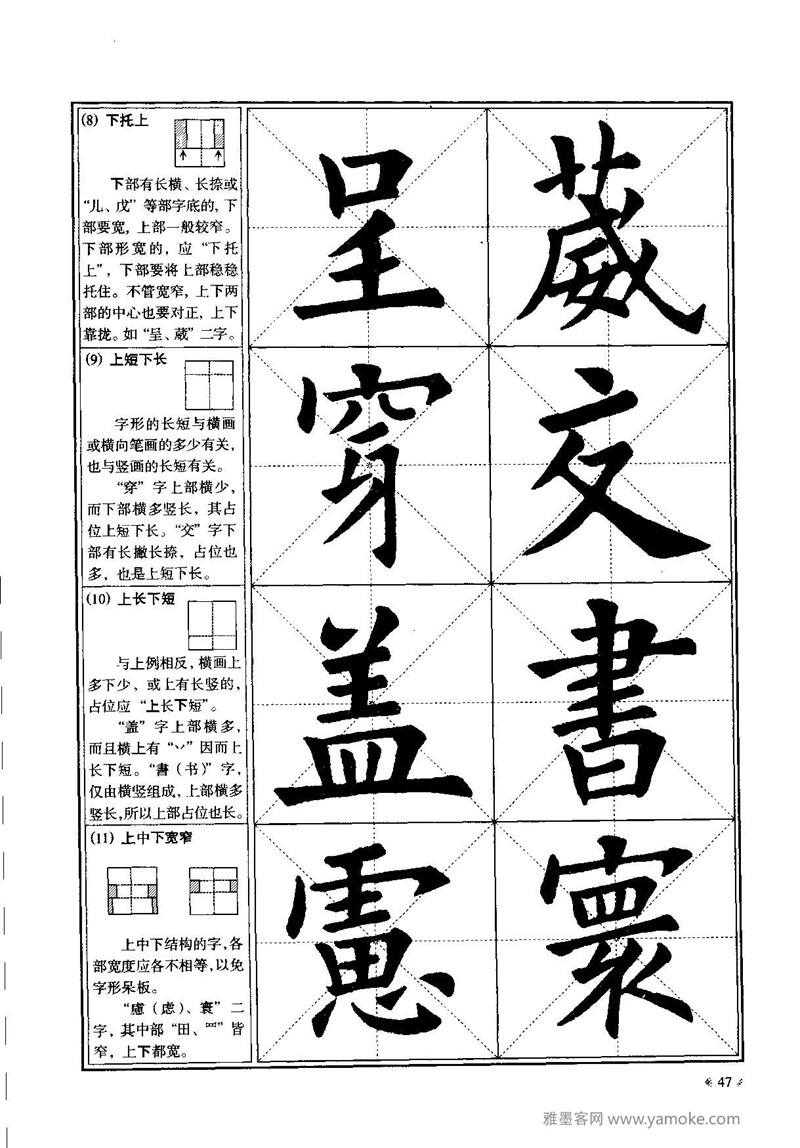 (8) 下托上
下部有长横、长捺或
“儿、戊”等部字底的，下
部要宽，上部一般较窄。
下部形宽的，应“下托
上”，下部要将上部稳稳
托住。不管宽窄，上下两
部的中心也要对正，上下
靠拢。如“呈、葳”二字。
呈 葳
(9) 上短下长
字形的长短与横画
或横向笔画的多少有关，
也与竖画的长短有关。
“穿”字上部横少，
而下部横多竖长，其占
位上短下长。“交”字下
部有长撇长捺，占位也
多，也是上短下长。
穿 交
(10) 上长下短
与上例相反，横画上
多下少，或上有长竖的，
占位应“上长下短”。
“盖”字上部横多，
而且横上有“丷”因而上
长下短。“書（书）”字，
仅由横竖组成，上部横多
竖长，所以上部占位也长。
盖 書
(11) 上中下宽窄
上中下结构的字，各
部宽度应各不相等，以免
字形呆板。
“慮（虑）、寰”二
字，其中部“田、罒”皆
窄，上下都宽。
慮 寰
47
雅墨客网 www.yamoke.com